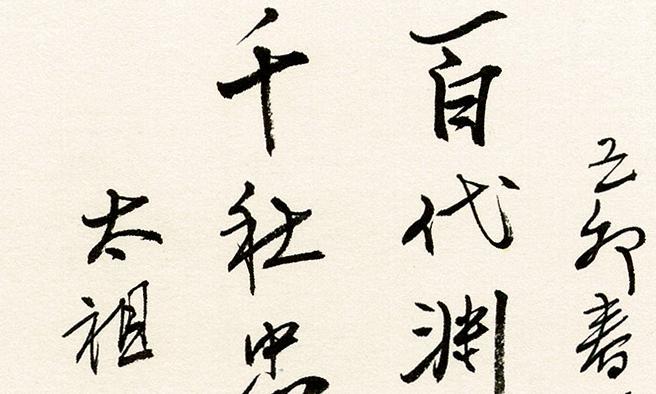 己卯春
百代渊
千秋中
太祖